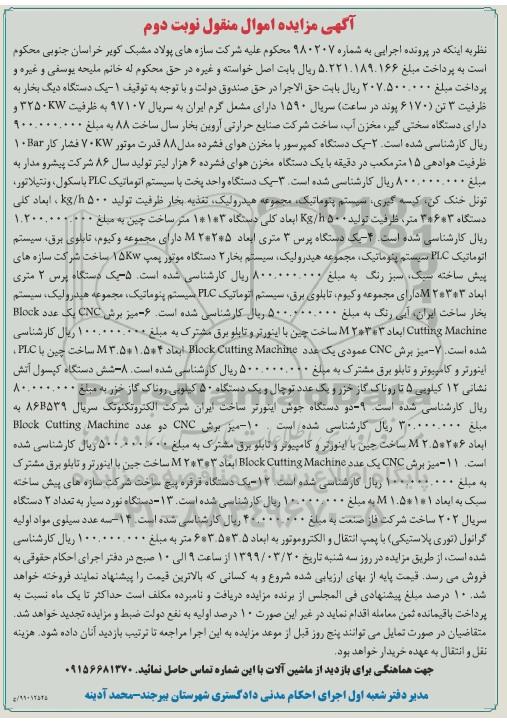 آگهی مزایده اموال منقول نوبت دوم
نظربه اینکه در پرونده اجرایی به شماره ۹۸۰۲۰۷ محکوم علیه شرکت سازه های پولاد مشبک کویر خراسان جنوبی محکوم
است به پرداخت مبلغ ۵.۲۲۱.۱۸۹.۱۶۶ ریال بابت اصل خواسته و غیره در حق محکوم له خانم ملیحه یوسفی و غیره و
پرداخت مبلغ ۲۰۷.۵۰۰.۰۰۰ ریال بابت حق الاجرا در حق صندوق دولت و با توجه به توقیف ۱-یک دستگاه دیگ بخار به
ظرفیت ۳ تن (۶۱۷۰ پوند در ساعت) سریال ۱۵۹۰ دارای مشعل گرم ایران به سریال ۹۷۱۰۷ به ظرفیت ۳۲۵۰KW و
دارای دستگاه سختی گیر، مخزن آب، ساخت شرکت صنایع حرارتی آروین بخار سال ساخت ۸۸ به مبلغ ۹۰۰.۰۰۰.۰۰۰
ریال کارشناسی شده است. ۲-یک دستگاه کمپرسور با مخزن هوای فشرده مدل۸۸ قدرت موتور ۷۰KW فشار کار ۱۰Bar
ظرفیت هوادهی ۱۵مترمکعب در دقیقه با یک دستگاه مخزن هوای فشرده ۶ هزار لیتر تولید سال ۸۶ شرکت پیشرو مدار به
مبلغ ۸۰۰.۰۰۰.۰۰۰ ریال کارشناسی شده است. ۳-یک دستگاه واحد پخت با سیستم اتوماتیک PLC باسکول، ونتیلاتور،
تونل خنک کن، کیسه گیری، سیستم پنوماتیک، مجموعه هیدرولیک، تغذیه بخار ظرفیت تولید ۵۰۰ kg/h ، ابعاد کلی
دستگاه ۳*۶*۳ متر، ظرفیت تولید۵۰۰ Kg/h ابعاد کلی دستگاه ۳*۱*۱ متر ساخت چین به مبلغ ۱.۲۰۰.۰۰۰.۰۰۰
ریال کارشناسی شده است. ۴-یک دستگاه پرس ۳ متری ابعاد M ۲*۲*۵ دارای مجموعه وکیوم، تابلوی برق، سیستم
اتوماتیک PLC سیستم پنوماتیک، مجموعه هیدرولیک، سیستم بخار ۲ دستگاه موتور پمپ ۱۵Kw ساخت شرکت سازه های
پیش ساخته سبک، سبز رنگ به مبلغ ۸۰۰.۰۰۰.۰۰۰ ریال کارشناسی شده است. ۵-یک دستگاه پرس ۲ متری
ابعاد M ۲*۳*۲دارای مجموعه وکیوم، تابلوی برق، سیستم اتوماتیک PLC سیستم پنوماتیک، مجموعه هیدرولیک، سیستم
بخار ساخت ایران، آبی رنگ به مبلغ ۵۰۰.۰۰۰.۰۰۰ ریال کارشناسی شده است. ۶-میز برش CNC یک عدد Block
Cutting Machine ابعاد M ۲*۳*۳ ساخت چین با اینورتر و تابلو برق مشترک به مبلغ ۱۰۰.۰۰۰.۰۰۰ ریال کارشناسی
شده است. ۷-میز برش CNC عمودی یک عدد Block Cutting Machine ابعاد M ۳.۵*۱.۵*۴ ساخت چین با PLC ،
اینورتر و کامپیوتر و تابلو برق مشترک به مبلغ ۵۰۰.۰۰۰.۰۰۰ ریال کارشناسی شده است. ۸-شش دستگاه کپسول آتش
نشانی ۱۲ کیلویی ۵ تا روناک گاز خزر و یک عدد توچال و یک دستگاه ۵۰ کیلویی روناک گاز خزر به مبلغ ۸۰.۰۰۰.۰۰۰
ریال کارشناسی شده است. ۹-دو دستگاه جوش اینورتر ساخت ایران شرکت الکترونگنوتک سریال ۸۶B۵۳۹ به
مبلغ ۳۰.۰۰۰.۰۰۰ ریال کارشناسی شده است . ۱۰-میز برش CNC دو عدد Block Cutting Machine
ابعاد M ۲.۵*۲*۶ ساخت چین با اینورتر و کامپیوتر و تابلو برق مشترک به مبلغ ۵۰۰.۰۰۰.۰۰۰ ریال کارشناسی شده
است. ۱۱-میز برش CNC یک عدد Block Cutting Machine ابعاد M ۲*۳*۳ ساخت چین با اینورتر و تابلو برق مشترک
به مبلغ ۱۰۰.۰۰۰.۰۰۰ ریال کارشناسی شده است. ۱۲-یک دستگاه قرقره پیچ ساخت شرکت سازه های پیش ساخته
سبک به ابعاد M ۱.۵*۱*۱ به مبلغ ۱۰.۰۰۰.۰۰۰ ریال کارشناسی شده است. ۱۳-دستگاه نورد سیار به تعداد ۲ دستگاه
سریال ۲۰۲ ساخت شرکت فاز صنعت به مبلغ ۴۰.۰۰۰.۰۰۰ ریال کارشناسی شده است. ۱۴-سه عدد سیلوی مواد اولیه
گرانول (توری پلاستیکی) با پمپ انتقال و الکتروموتور به ابعاد ۳.۵*۳.۵*۶ متر به مبلغ ۱۰۰.۰۰۰.۰۰۰ ریال کارشناسی
شده است، از طریق مزایده در روز سه شنبه تاریخ ۱۳۹۹/۰۳/۲۰ از ساعت ۹ الی ۱۰ صبح در دفتر اجرای احکام حقوقی به
فروش می رسد. قیمت پایه از بهای ارزیابی شده شروع و به کسانی که بالاترین قیمت را پیشنهاد نمایند فروخته خواهد
شد. ۱۰ درصد مبلغ پیشنهادی فی المجلس از برنده مزایده دریافت و نامبرده مکلف است حداکثر تا یک ماه نسبت به
پرداخت باقیمانده ثمن معامله اقدام نماید در غیر این صورت ۱۰ درصد اولیه به نفع دولت ضبط و مزایده تجدید خواهد شد.
متقاضیان در صورت تمایل می توانند پنج روز قبل از موعد مزایده به این اجرا مراجعه تا ترتیب بازدید آنان داده شود. هزینه
نقل و انتقال به عهده خریدار خواهد بود.
جهت هماهنگی برای بازدید از ماشین آلات با این شماره تماس حاصل نمائید. ۰۹۱۵۶۶۸۱۳۷۰
مدیر دفتر شعبه اول اجرای احکام مدنی دادگستری شهرستان بیرجند-محمد آدینه
۹۹۰۱۲۵۲۵/خ